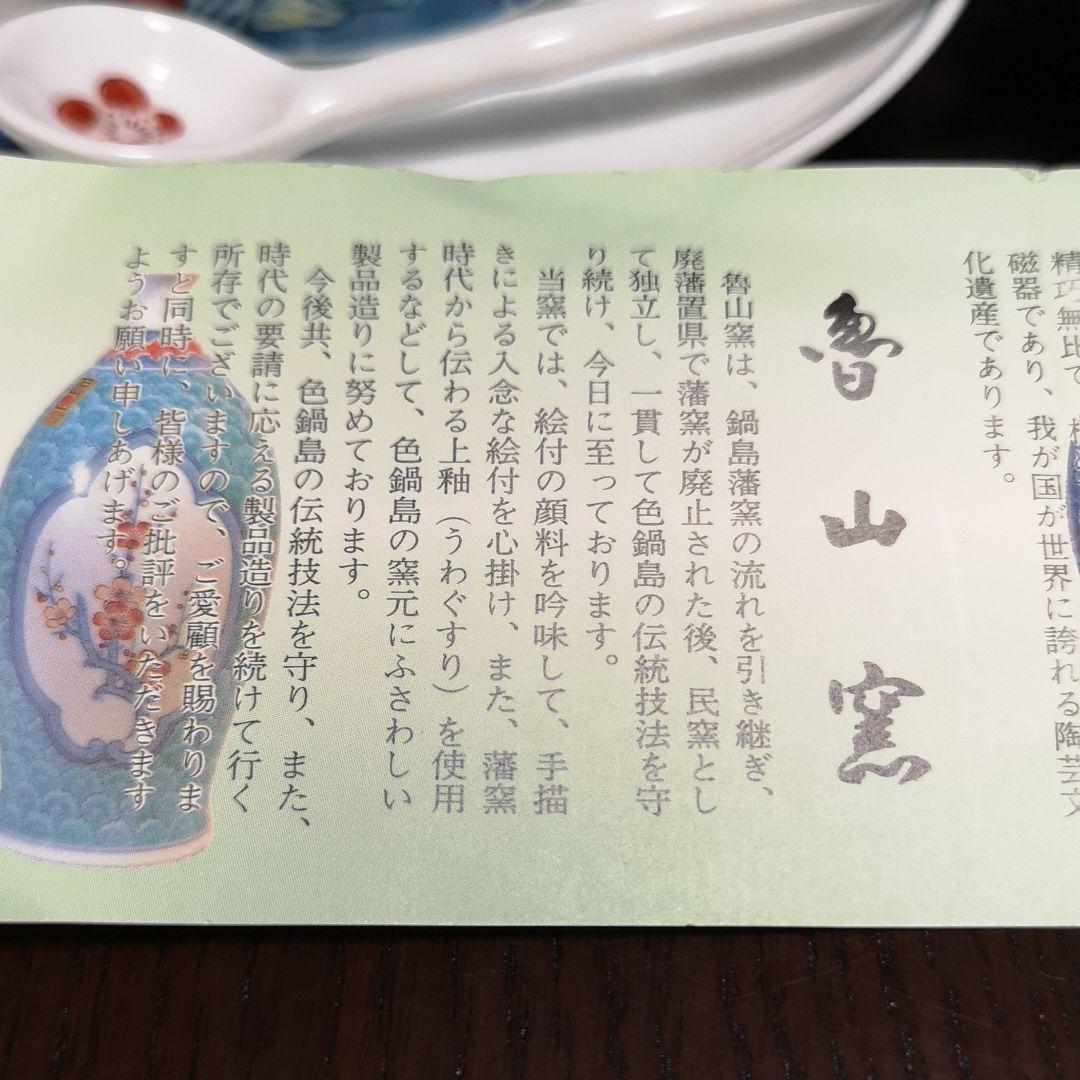 精巧無比で、
磁器であり、我が国が世界に誇れる陶芸文
化遺産であります。
魯山窯
魯山窯は、鍋島藩窯の流れを引き継ぎ、
廃藩置県で藩窯が廃止された後、民窯とし
て独立し、一貫して色鍋島の伝統技法を守
り続け、今日に至っております。
当窯では、絵付の顔料を吟味して、手描
きによる入念な絵付を心掛け、また、藩窯
時代から伝わる上釉（うわぐすり）を使用
するなどして、色鍋島の窯元にふさわしい
製品造りに努めております。
今後共、色鍋島の伝統技法を守り、また、
時代の要請に応える製品造りを続けて行く
所存でございますので、ご愛顧を賜わりま
すと同時に、皆様のご批評をいただきます
ようお願い申しあげます。